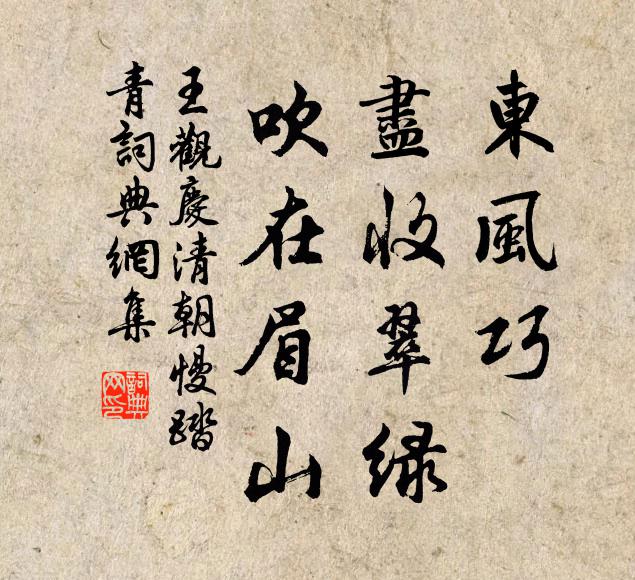 東風巧
盡收翠綠
吹在眉山
王觀慶清朝慢踏
青詞典網集
詞典
网印